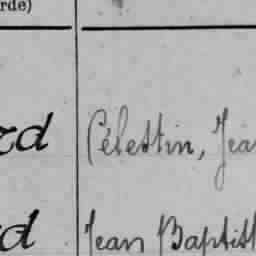 rde)
rd Célestin, Jea
rd Jean Baptist